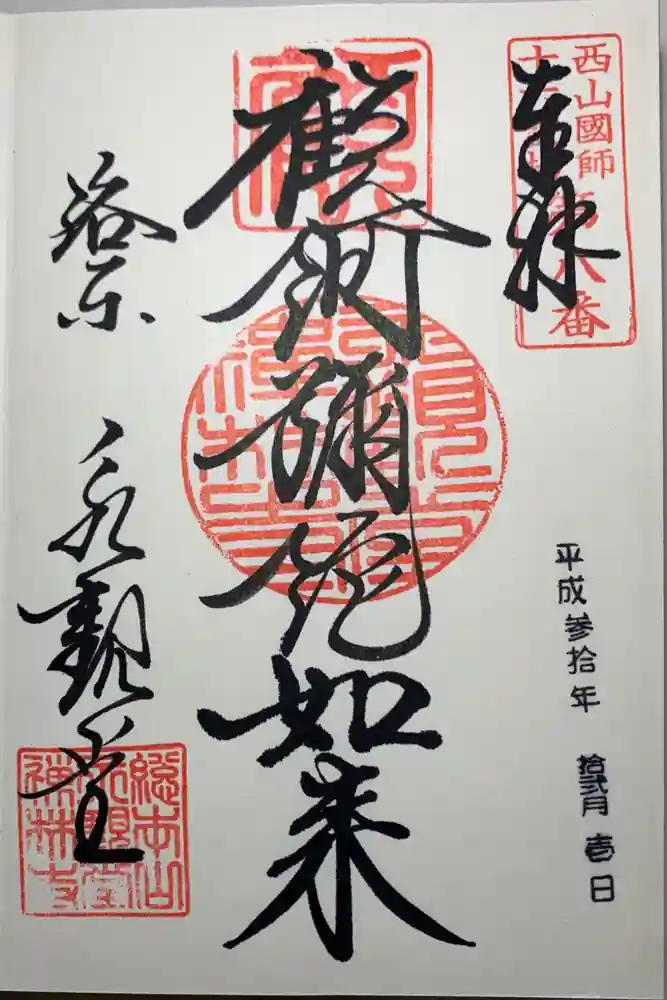 西山國師
第八番
奉拝
平成参拾年 拾弐月 壱日
顧阿彌陀如来
洛東 永觀堂
總本山
永觀堂
禅林寺